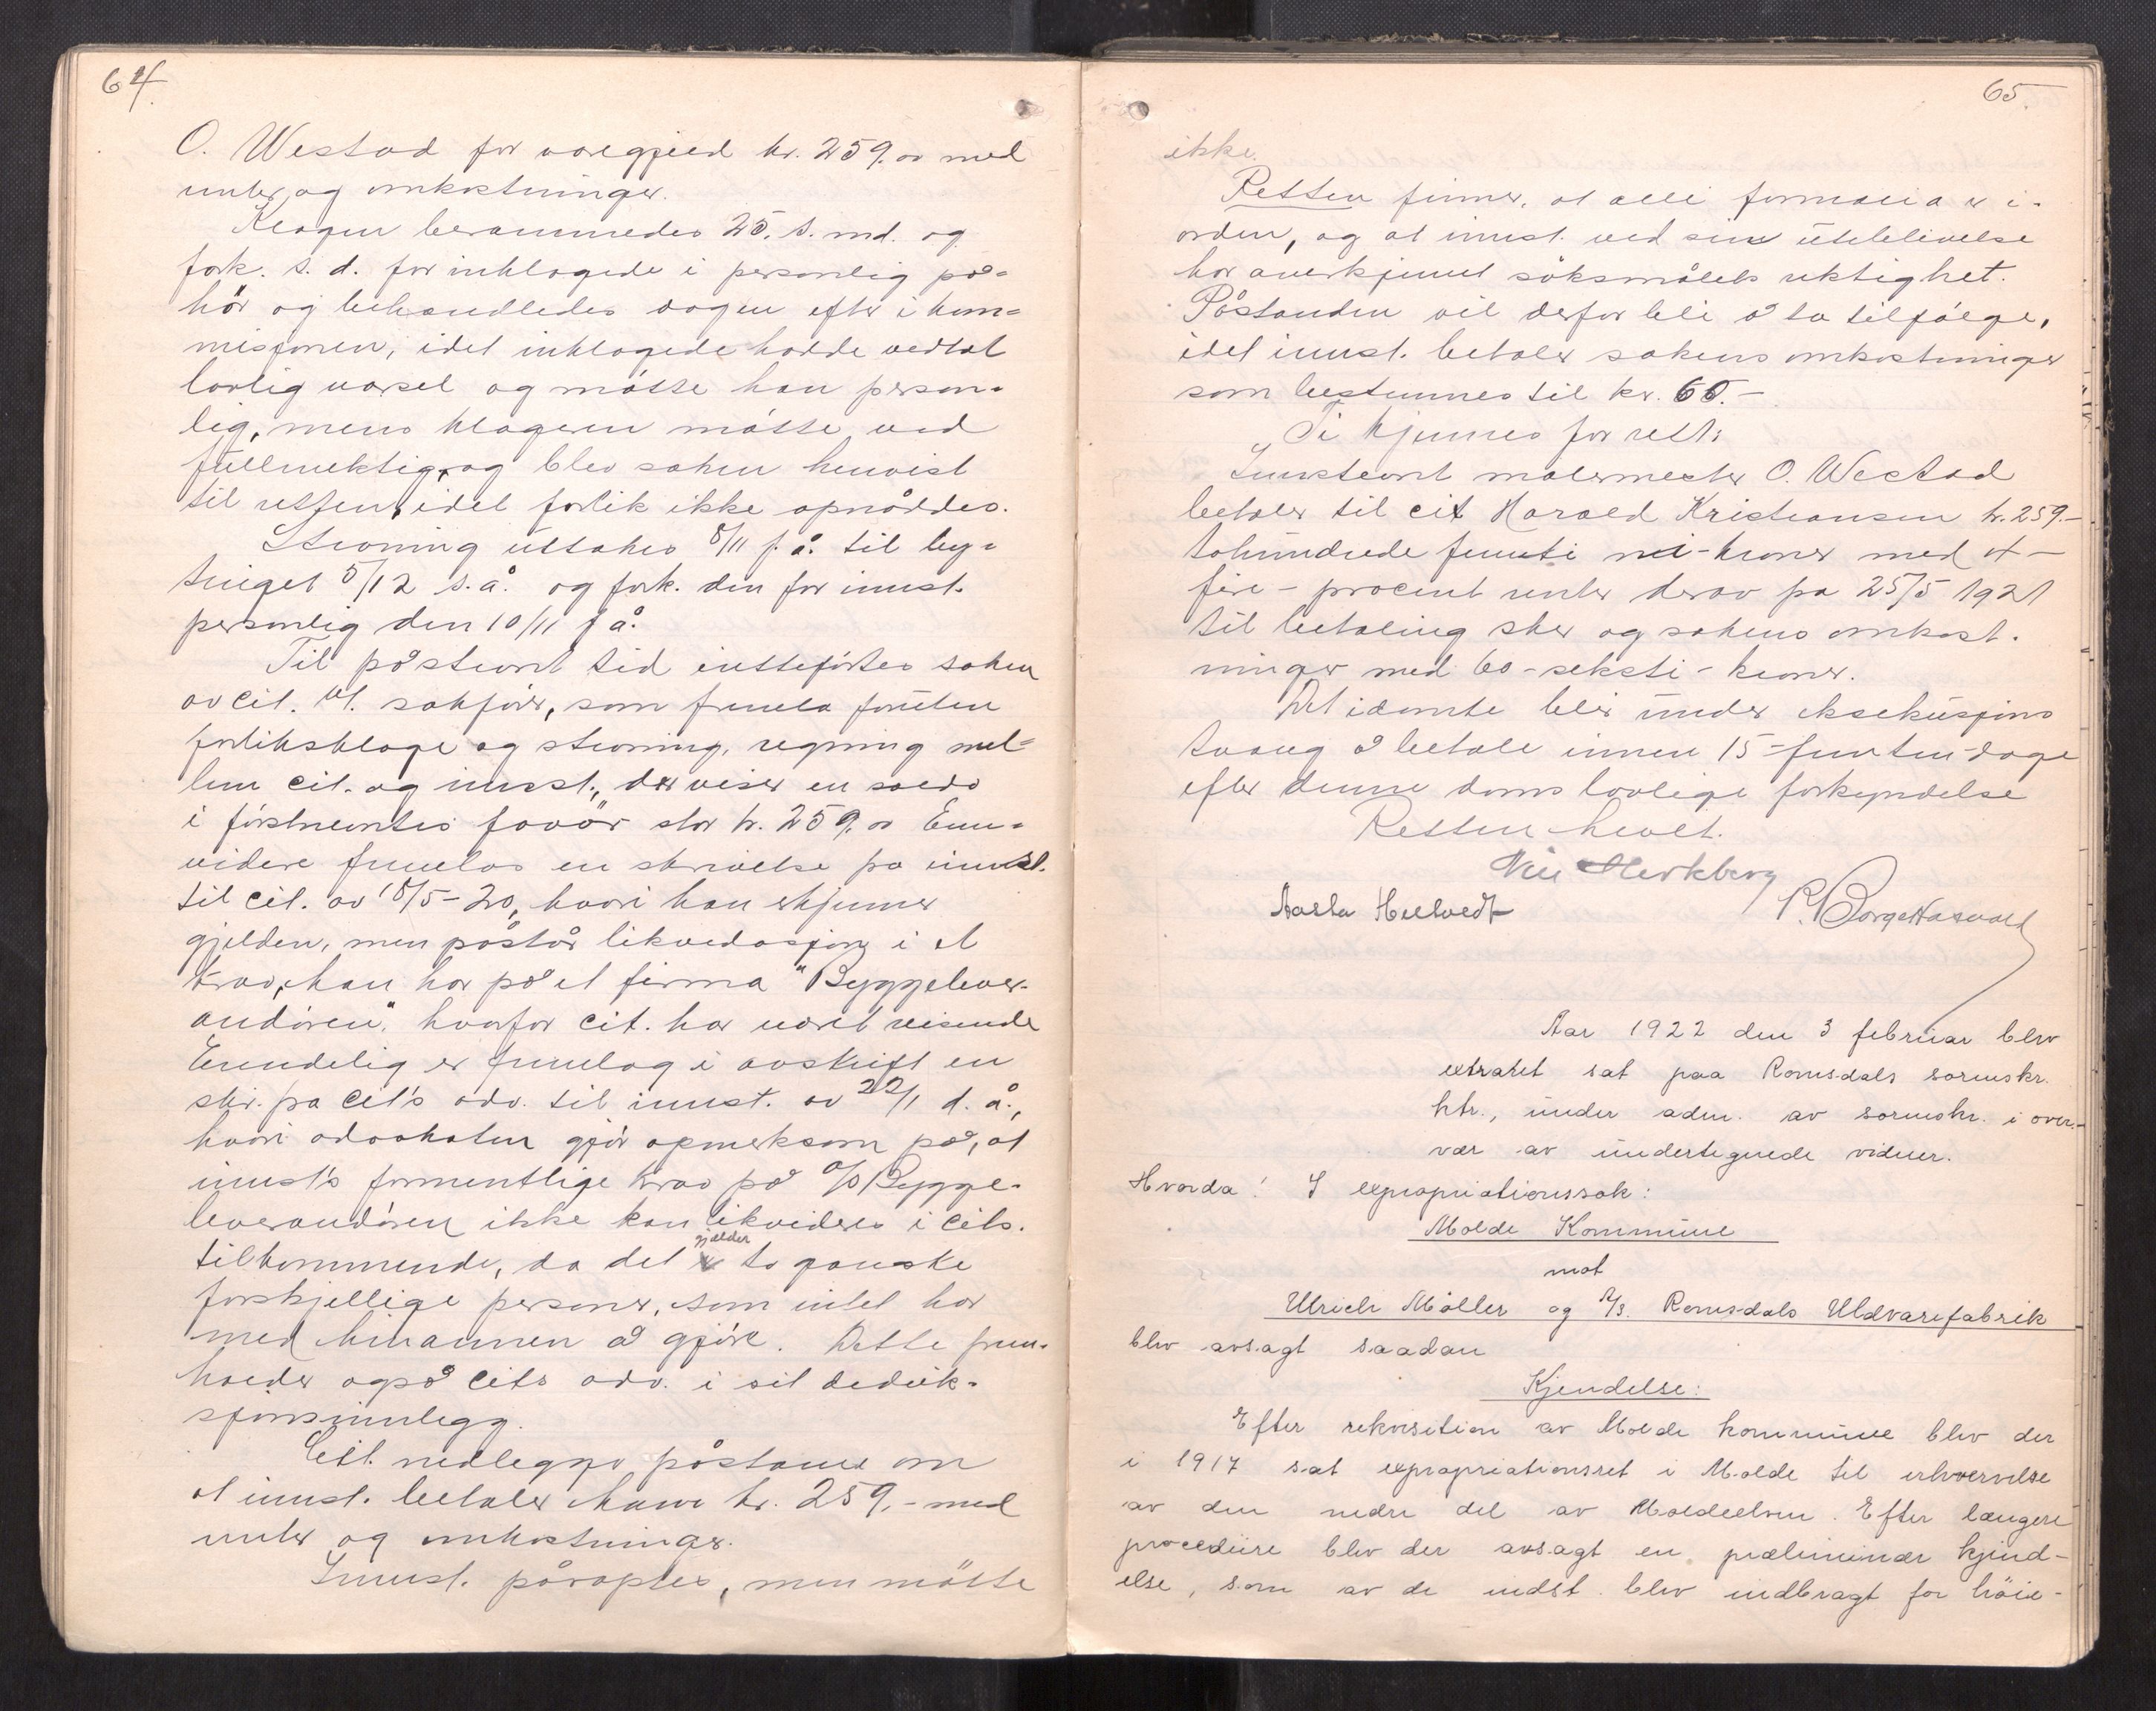 64.
O. Westad for varegjeld kr. 259.00 med
renter og omkostninger.
Klagen berammedes 25. s. md. og
fork. s. d. for inklagede i personlig på-
hör og behandledes dagen efter i kom-
misjonen, idet inklagede hadde vedtat
lovlig varsel og mötte han person-
lig, mens klageren mötte ved
fullmektig, og blev saken henvist
til retten, idet forlik ikke opnåddes.
Stevning uttokes 8/11 f. å. til by-
tinget 5/12 s. å. og fork. den for innst.
personlig den 10/11 f å.
Til påstevnt tid inkförtes saken
av cit. v. sakförer, som fremla foruten
forliksklage og stevning, regning mel-
lem cit. og innst., der viser en saldo
i förstnevntes favör stor kr. 259.00 Enn-
videre fremlas en skrivelse fra innst.
til cit. av 18/5-20, hvori han erkjenner
gjelden, men påstår likvidasjon i et
krav, han har på et firma "Byggelever-
andören", hvorfor cit. har været reisende
Enndelig er fremlag i avskrift en
skr. fra cit's adv. til innst. av 22/1 d. å.,
hvori advokaten gjör opmerksom på, at
innst's formentlige krav på A/S Bygge-
leverandören ikke kan likvideres i cits.
tilkommende, da det gjælder to ganske
forskjellige personer, som intet har
med hinannen å gjöre. Dette frem-
holder også cits adv. i sit deduk-
sjonsinnlegg.
Cit. nedlegger påstand om
at innst. betaler ham kr. 259,- med
renter og omkostninger.
Innst. påroptes, men mötte
65.
ikke.
Retten finner, at alle formalia er i
orden, og at innst. ved sin uteblivelse
har anerkjennet söksmålets riktighet.
Påstanden vil derfor bli å ta tilfölge,
idet innst. betaler sakens omkostninger
som bestemmes til kr. 60.-
Ti kjennes for rett:
Innstevnt malermester O. Westad
betaler til cit Harald Kristiansen kr. 259.-
tohundrede femti ni-kroner med 4-
fire-procent renter derav fra 25/5 1921
til betaling sker og sakens omkost-
ninger med 60-seksti-kroner.
Det idömte blir under eksekusjons
tvang å betale innen 15-femten-dage
efter denne doms lovlige forkyndelse
Retten hevet.
Aasta Helvedt
Aar 1922 den 3 februar blev
extraret sat paa Romsdals sorenskr.
ktr., under adm. av sorenskr. i over-
vær av undertegnede vidner.
Hvorda! I expropriationssak:
Molde Kommune
mot
Ulrich Möller og A/S. Romsdals Uldvarefabrik
blev avsagt saadan
Kjendelse:
Efter rekvisition av Molde kommune blev der
i 1917 sat expropriationsret i Molde til erhvervelse
av den nedre del av Moldeelven. Efter længere
procedure blev der avsagt en præliminær kjend-
else, som av de indst. blev indbragt for höie-